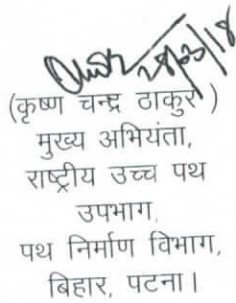 28/03/18
(कृष्ण चन्द्र ठाकुर )
मुख्य अभियंता,
राष्ट्रीय उच्च पथ
उपभाग,
पथ निर्माण विभाग,
बिहार, पटना।